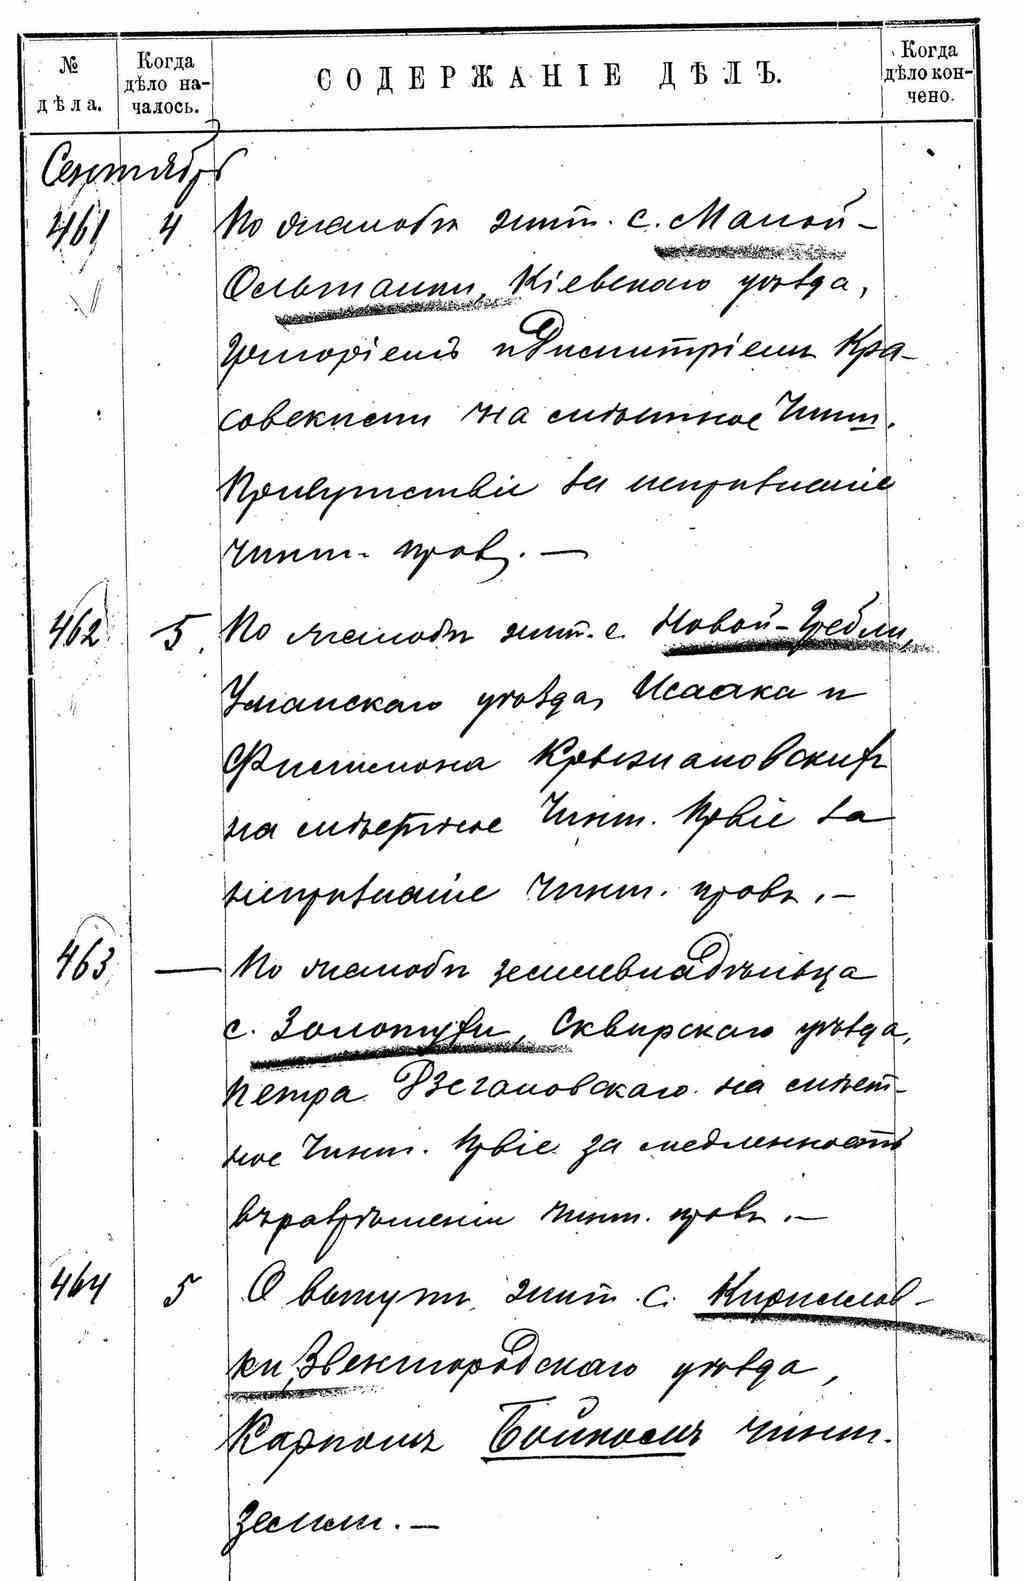 № дѣла.
Когда дѣло началось.
СОДЕРЖАНІЕ ДѢЛЪ.
Когда дѣло кончено.
Сентябрь
461 4 По жалобѣ жит. с. Малой-
Ольшанки, Кіевскаго уѣзда,
Григоріемъ и Дмитріемъ Кра-
совскими на мѣстное Чинш.
Присутствіе за непризнаніе
чинш. прав. —
462 5. По жалобѣ жит. с. Новой-Гребли,
Уманскаго уѣзда, Исаака и
Филимона Крыжановскихъ
на мѣстное Чинш. Пр-віе за
непризнаніе чинш. правъ. —
463 — По жалобѣ землевладѣльца
с. Золотухи, Сквирскаго уѣзда,
Петра Дзегановскаго на мѣст-
ное Чинш. Пр-віе за медленность
въ разрѣшеніи чинш. правъ. —
464 5 О выкупѣ жит. с. Кириллов-
ки, Звенигородскаго уѣзда,
Карпомъ Бойкомъ чинш.
земли. —